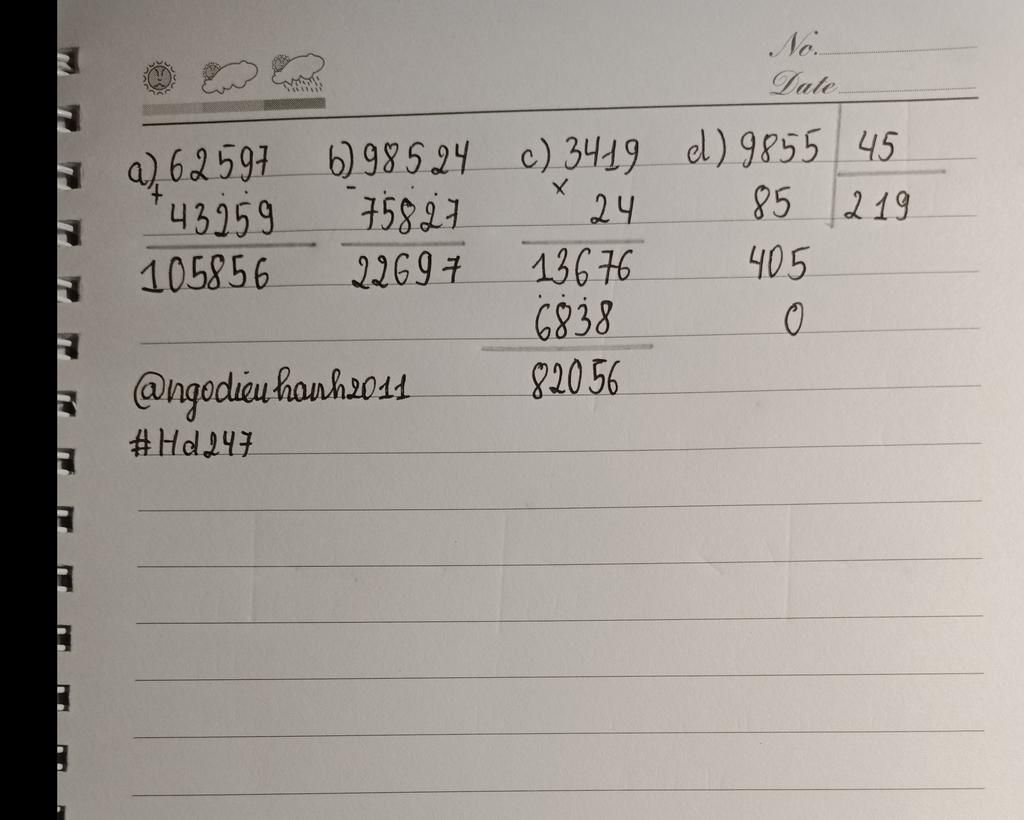 No.
Date
a) 62597 b) 98524 c) 3419 d) 9855 45
+ 43259 - 75827 x 24 85 219
105856 22697 13676 405
6838 0
@ngodieuhanh2011 82056
#Hd247